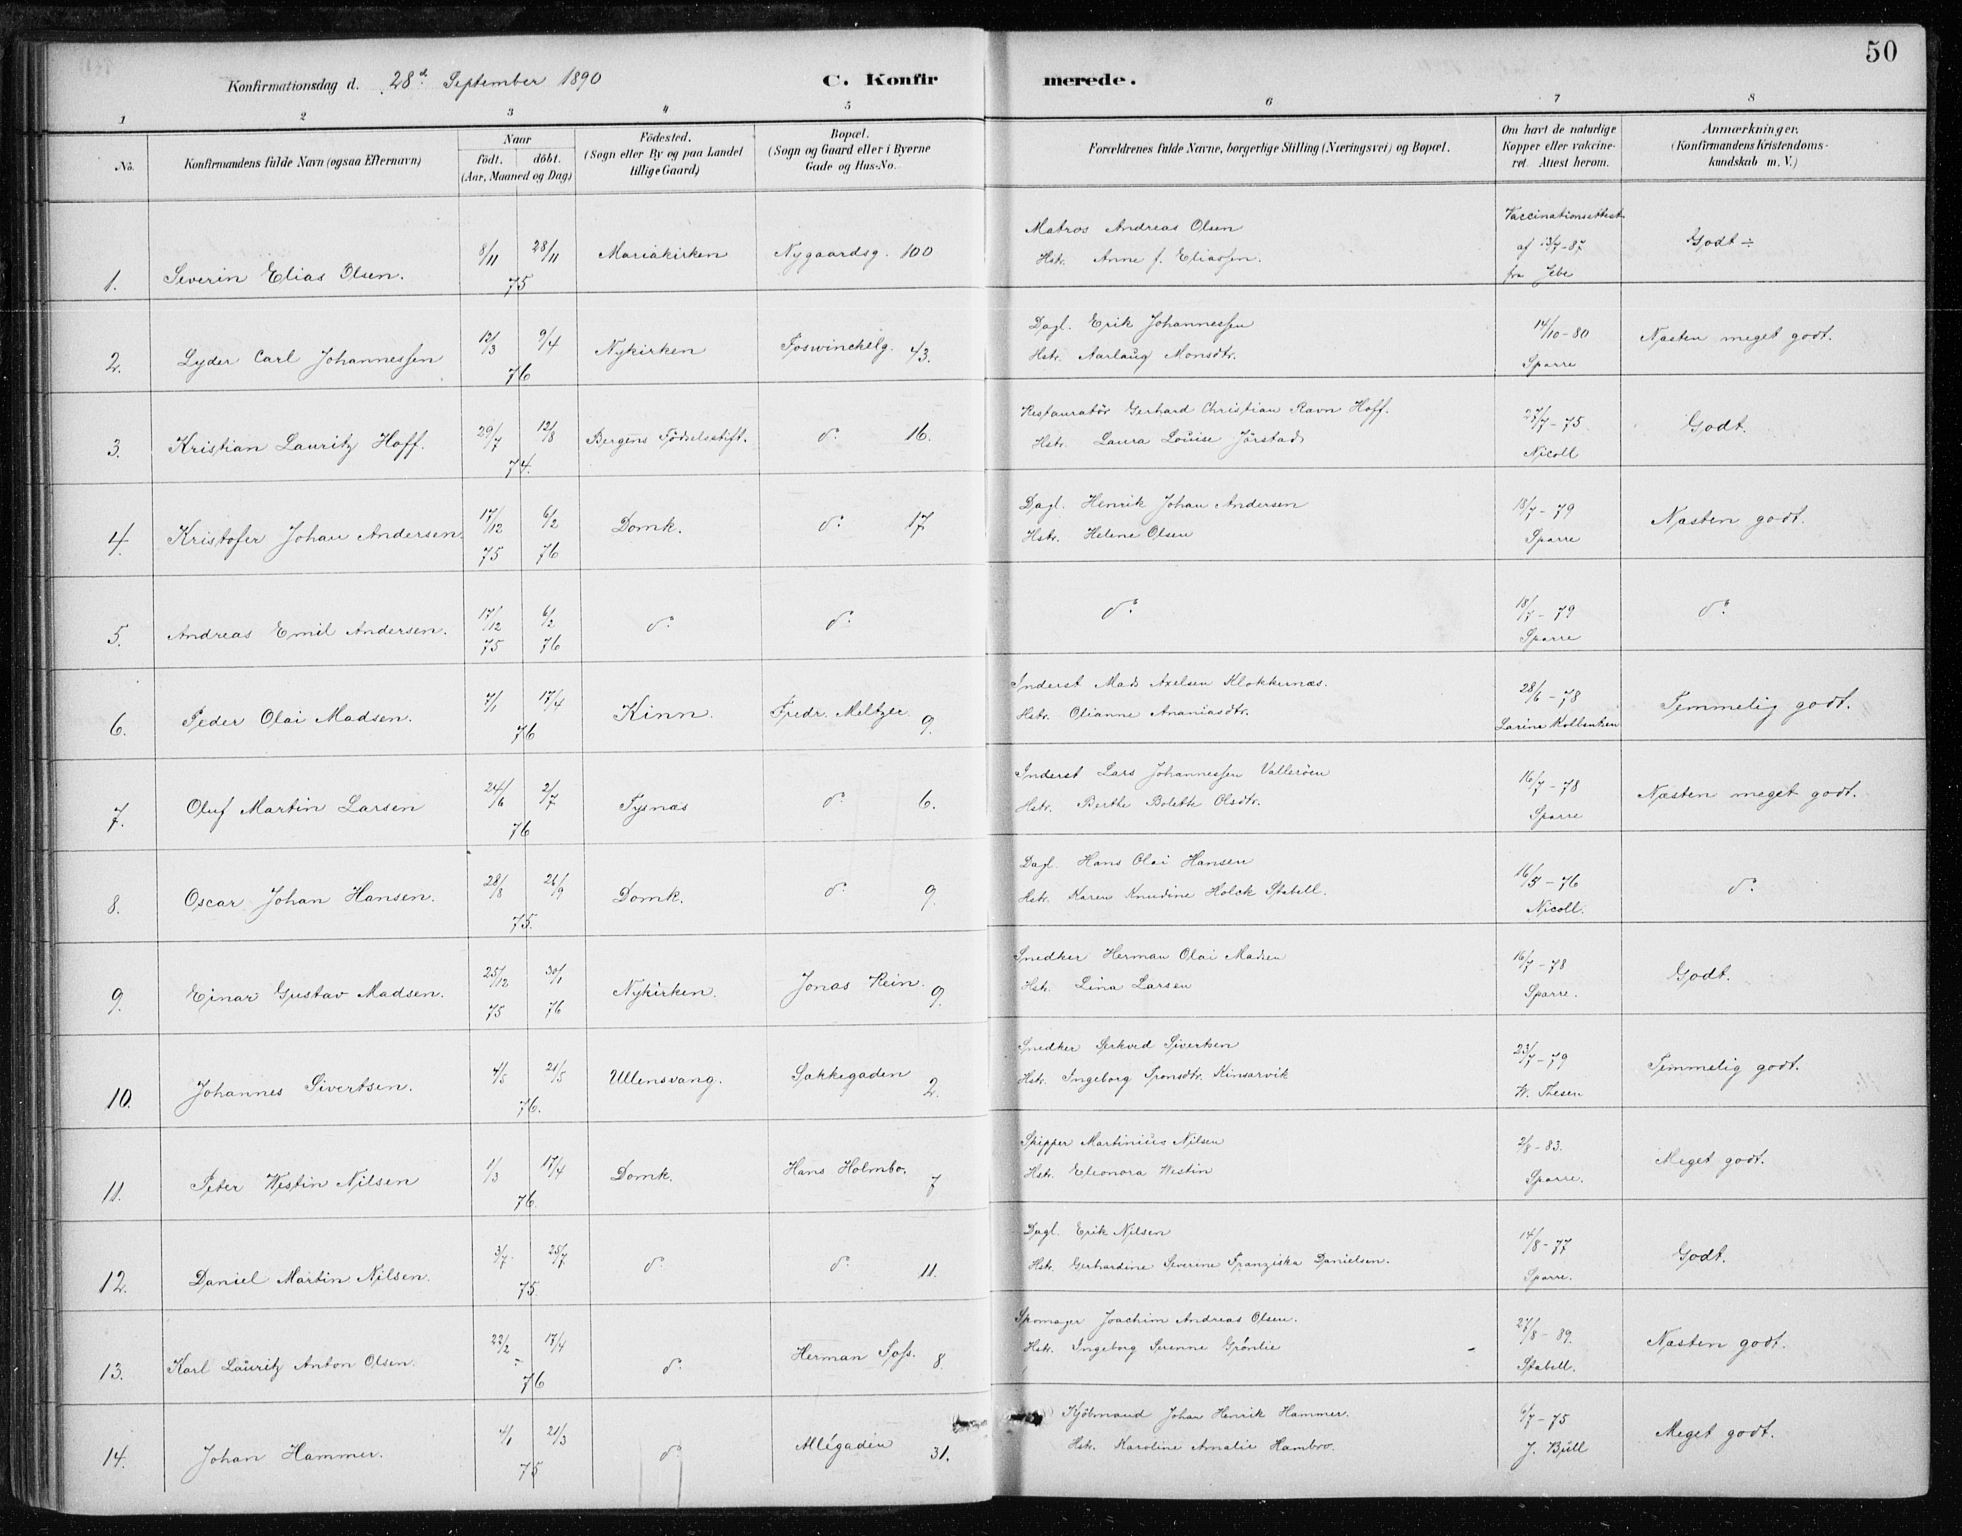 50
Konfirmationsdag d. 28d September 1890 C. Konfirmerede.
1 2 3 4 5 6 7 8
No. Konfirmandens fulde Navn (ogsaa Efternavn) Naar födt. döbt. (Aar, Maaned og Dag) Födested. (Sogn eller By og paa Landet tillige Gaard) Bopæl. (Sogn og Gaard eller i Byerne Gade og Hus-No. Forældrenes fulde Navne, borgerlige Stilling (Næringsvei) og Bopæl. Om havt de naturlige Kopper eller vakcineret. Attest herom. Anmærkninger. (Konfirmandens Kristendomskundskab m. V.)
1. Severin Elias Olsen. 8/11 28/11 75 Mariakirken Nygaardsg. 100 Matros Andreas Olsen Hstr. Anne f. Eliassen. Vaccinationsattest af 13/7-87 fra Jebe Godt ÷
2. Lyder Carl Johannessen 12/3 9/4 76 Nykirken Foswinckelg. 43. Dagl. Erik Johannessen Hstr. Aarlaug Monsdtr. 14/10-80 Sparre Næsten meget godt.
3. Kristian Lauritz Hoff. 29/7 12/8 74. Bergens Födselsstift. do 16. Restauratör Gerhard Christian Ravn Hoff. Hstr. Laura Louise Jörstad 27/7-75. Nicoll Godt.
4. Kristofer Johan Andersen. 17/12 75 6/2 76 Domk. do 17. Dagl. Henrik Johan Andersen Hstr. Helene Olsen 18/7-79 Sparre Næsten godt.
5. Andreas Emil Andersen. 17/12 75 6/2 76 do do do 18/7-79 Sparre do
6. Peder Olai Madsen. 7/1 17/4 76 Kinn. Fredr. Meltzer 9. Inderst Mads Axelsen Klokkernæs. Hstr. Olianne Ananiasdtr. 28/6-78 Larine Temmelig godt.
7. Oluf Martin Larsen 24/6 2/7 76 Tysnæs do 6. Inderst Lars Johannessen Valleröen Hstr. Berthe Bolette Olsdtr. 16/7-78 Sparre Næsten meget godt.
8. Oscar Johan Hansen. 28/8 26/9 75. Domk. do 9. Dagl. Hans Olai Hansen Hstr. Karen Knudine Holck Stabell. 16/5-76 Nicoll. do
9. Einar Gustav Madsen. 25/12 75 30/1 76 Nykirken. Jonas Rein. 9. Snedker Herman Olai Madsen Hstr. Lina Larsen 16/7-78 Sparre. Godt.
10. Johannes Sivertsen. 4/5 21/5 76. Ullensvang. Sakkegaden 2. Snedker Sivertsen Hstr. Ingeborg Kinsarvik 23/7-79 W. Thesen Temmelig godt.
11. Peter Westin Nilsen 1/3 17/4 76. Domk. Hans Holmbo. 7 Skipper Martinius Nilsen Hstr. Eleonora Westin 2/8-83. Sparre. Meget godt.
12. Daniel Martin Nilsen. 3/7 25/7 75. do do 11. Dagl. Erik Nilsen Hstr. Gerhardine Severine Franziska Danielsen. 14/8-77 Sparre. Godt.
13. Karl Lauritz Anton Olsen. 22/2 17/4 76 do Herman Foss. 8. Skomager Joachim Andreas Olsen. Hstr. Ingeborg Serenne Grönlie 27/8-89. Stabell. Næsten godt.
14. Johan Hammer. 4/1 21/3 75 do Allégaden 31. Kjöbmand Johan Henrik Hammer. Hstr. Karoline Amalie Hambro. 6/7-75 J. Bull Meget godt.